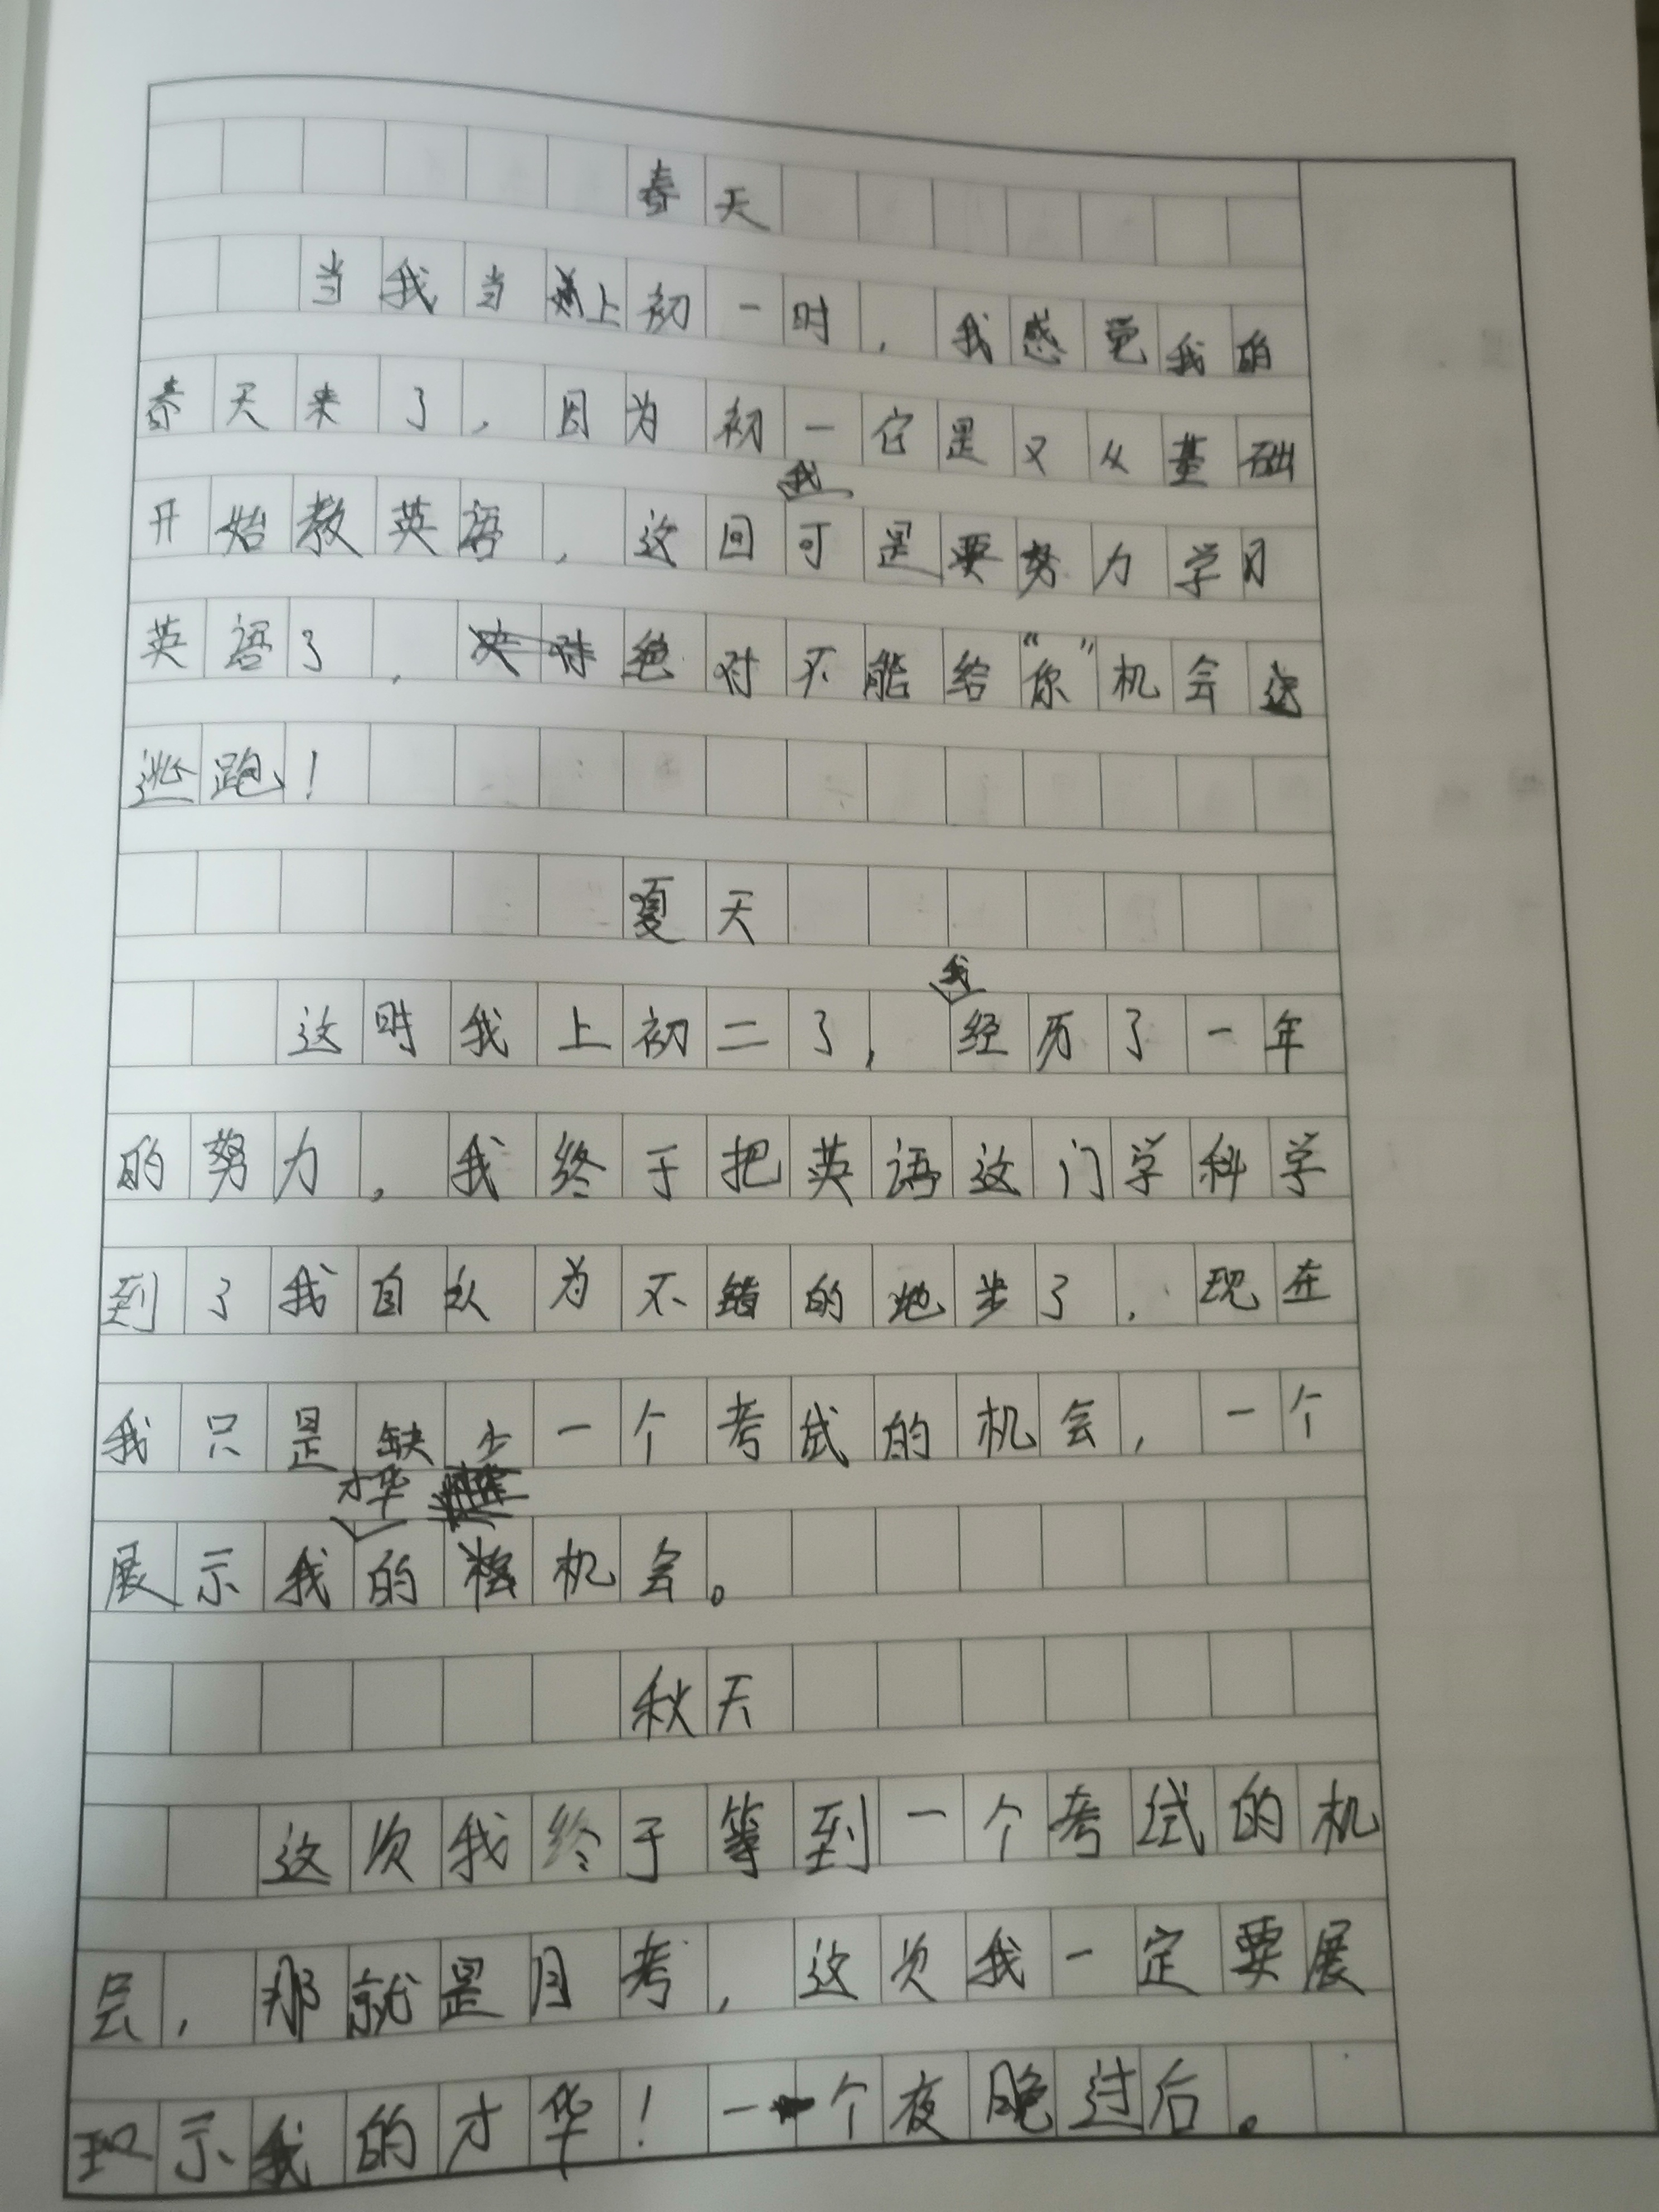 春天
当我当上初一时，我感觉我的
春天来了，因为初一它是又从基础
开始教英语，这回我可是要努力学习
英语了，绝对不能给“你”机会逃
逃跑！
夏天
这时我上初二了，我经历了一年
的努力，我终于把英语这门学科学
到了我自认为不错的地步了，现在
我只是缺少一个考试的机会，一个
展示我才华的机会。
秋天
这次我终于等到一个考试的机
会，那就是月考，这次我一定要展
现示我的才华！一个夜晚过后。